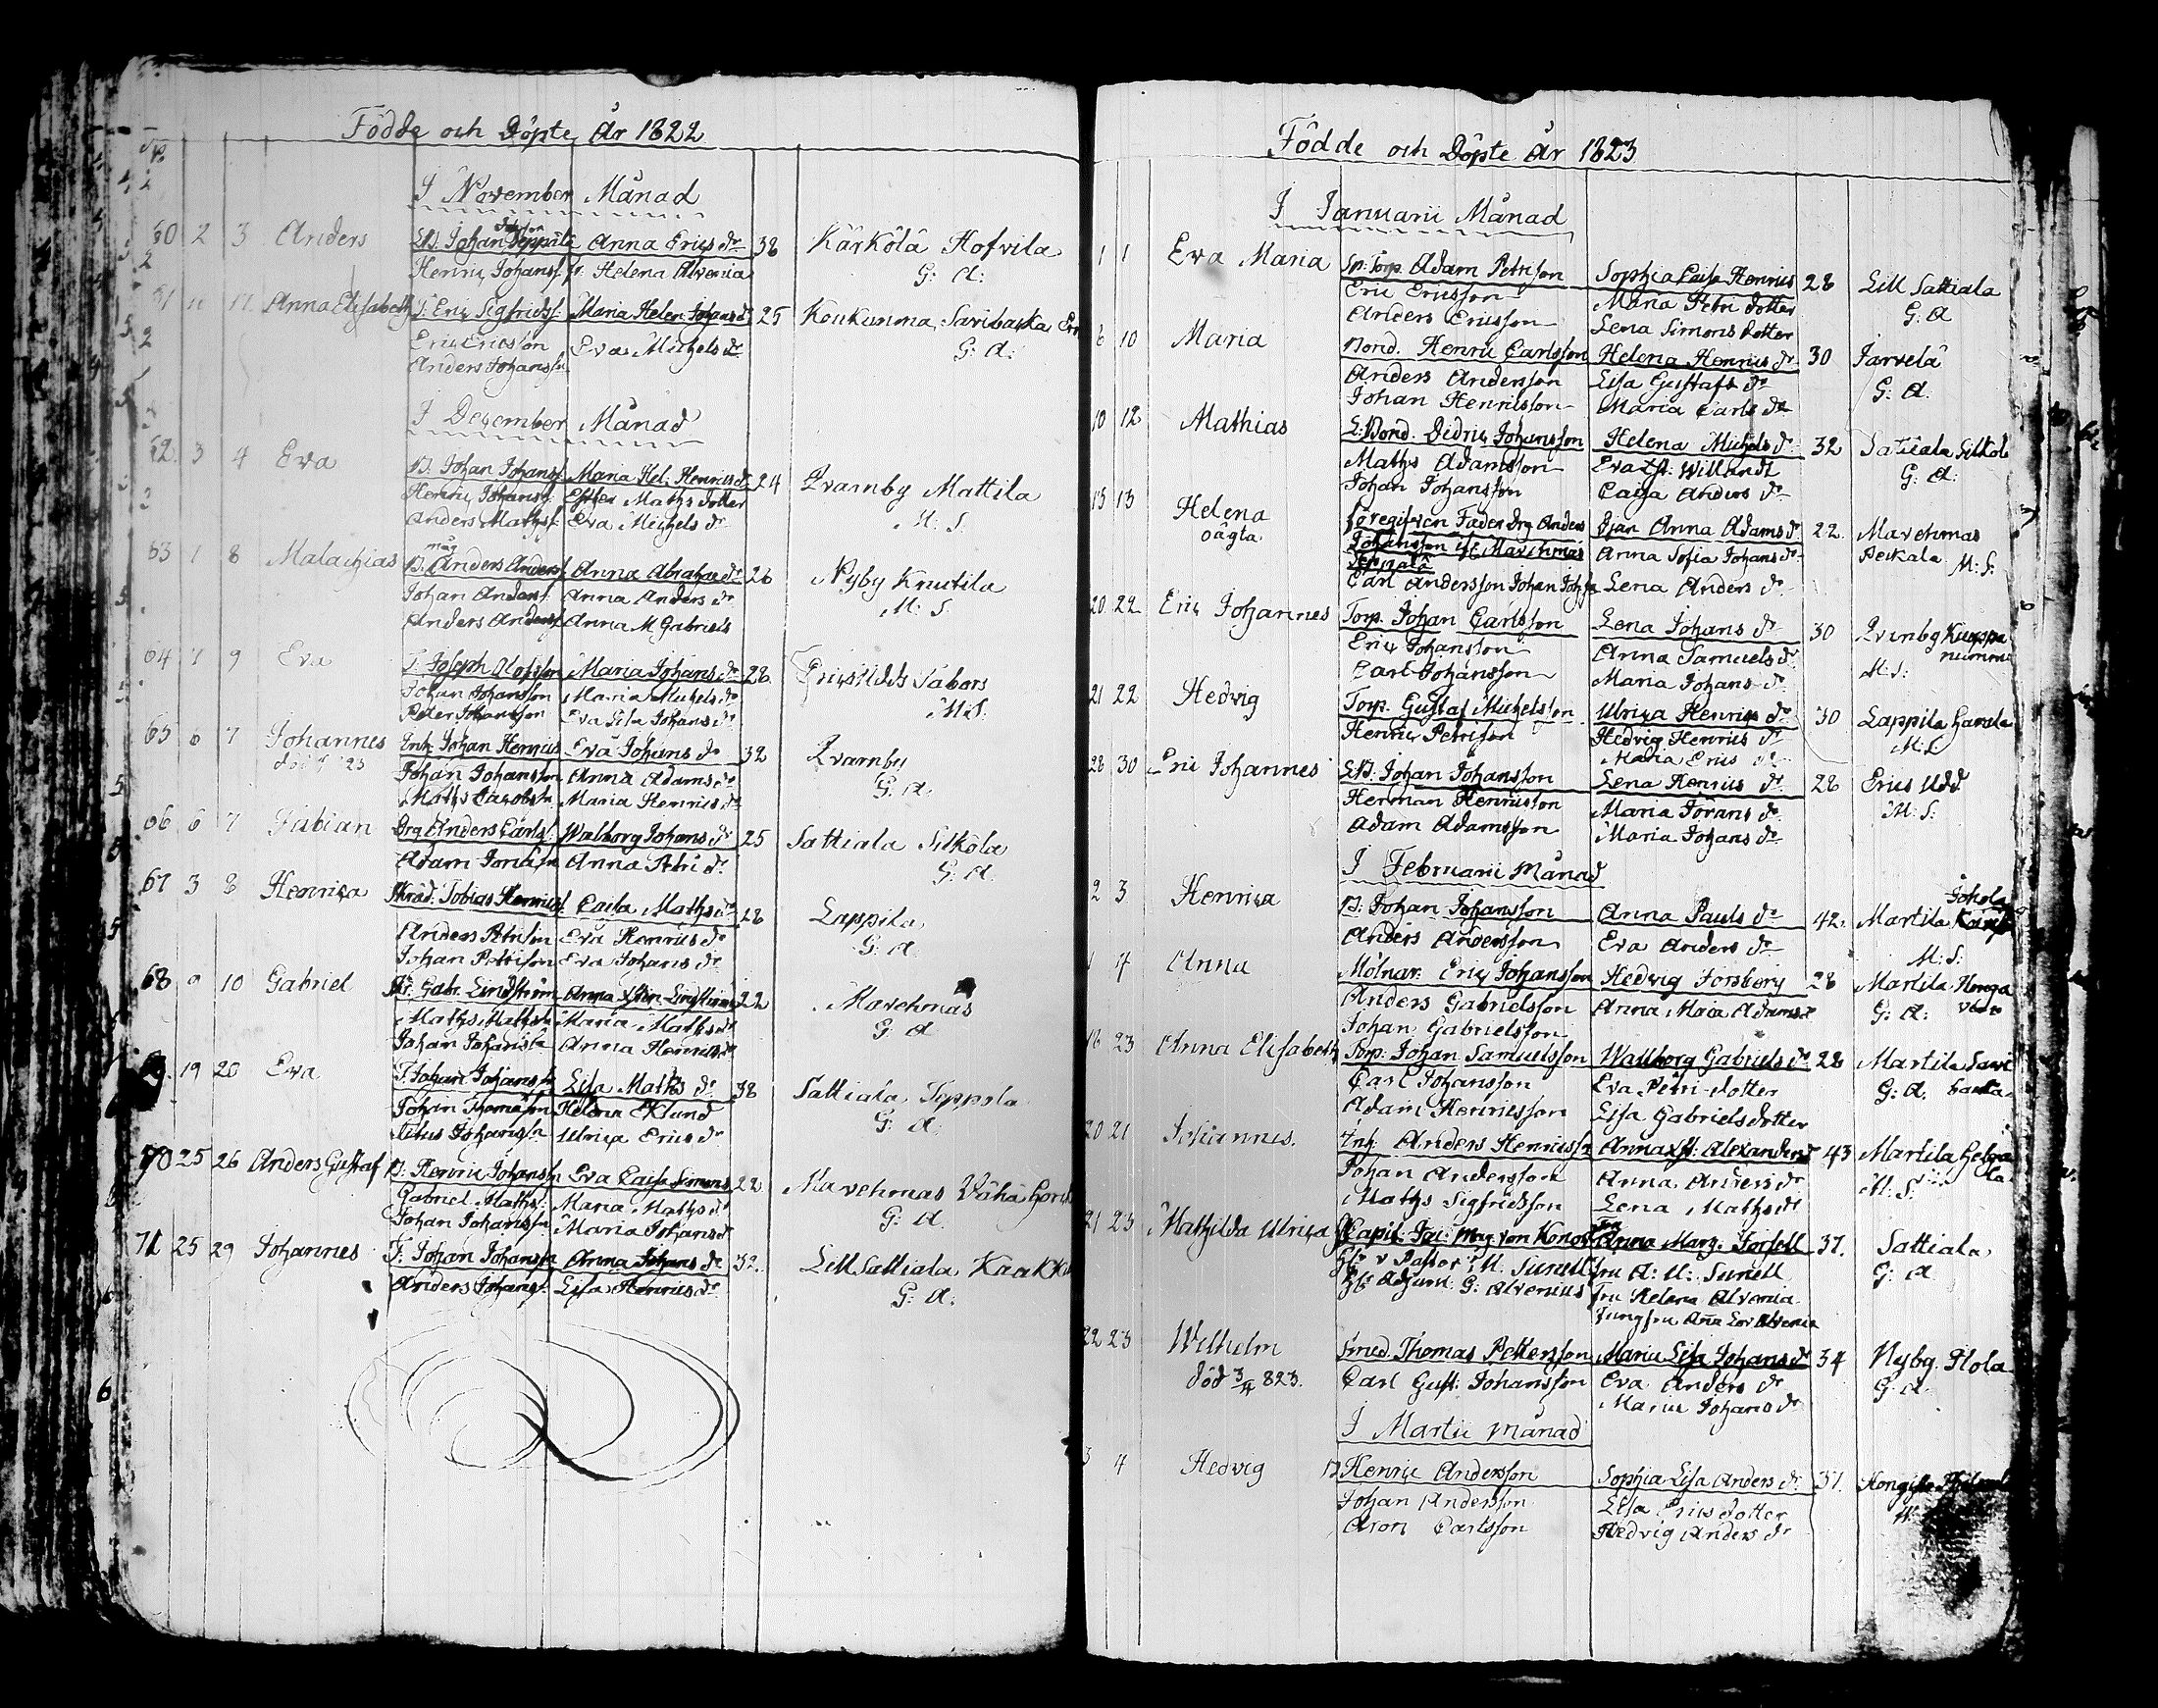 Födde och Döpte År 1822
No
I November Månad
60 2 3 Anders Johan Anna Erics dr 38 Kärkölä Hofvila
Henric Johanss. Helena Alvenia G: A:
61 Anna Elisabeth T: Eric Sigfridss: Maria Helen Johans dr 25 Koukunma, Saribacka
Eric Ericsson Eva Michels dr G: A:
Anders Johanss
I December Månad
62. 3 4 Eva B. Johan Johanss Maria Hel. Henrics dr 24 Qvarnby Mattila
Henric Johanss Esther Maths dotter M: S:
Anders Mathss: Eva Michels dr
63 1 8 Malachias B. Anders Anderss Anna Abraha dr 26 Nyby Knutila
Johan Anderss Anna Anders dr M: S:
Anders Anderss Anna M Gabriels
64 9 Eva T. Joseph Olofsson Maria Johans dr 28. Erics Udds Tabors
Johan Johansson Maria Michels dr M: S:
Peter Johansson Eva Lisa Johans dr
65 6 7 Johannes Inh. Johan Henrics Eva Johans dr 32 Qvarnby
Johan Johansson Anna Adams dr G: A.
Maths Jacobss Maria Henrics dr
66 6 7 Fabian Drg Anders Carls: Walborg Johans dr 25 Sattiala Silkölä
Adam Anna Petri dr G: A.
67 3 8 Henrica Skräd. Tobias Henrics Caisa Maths dr 28 Lappila
Anders Petrisson Eva Henrics dr G: A.
Johan Pettisson Eva Johans dr
68 9 10 Gabriel Gabr. Lindström Anna 22 Marehmas
Maths Mathss Maria Maths dr G: A.
Johan Johanss Anna Henrics dr
19 20 Eva T. Johan Johanss Lisa Maths dr 38 Sattiala Seppola
Johan Helena Eklund G: A.
Titus Johanss Ulrica Erics dr
70 25 26 Anders Gustaf B. Henric Johanss Eva Caisa Simons 22 Marehmas Vähä
Gabriel Mathss: Maria Maths dr G: A.
Johan Johanss Maria Johans dr
71 25 29 Johannes T. Johan Johanss Anna Johans dr 32. Lill Sattiala
Anders Johanss: Lisa Henrics dr G: A.
Födde och Döpte År 1823
I Januarii Månad
1 1 Eva Maria Sp: Torp. Adam Petrisson Sophia Caisa Henrics 28 Lill Sattiala
Eric Ericsson Maria Petri dotter G: A
Anders Ericsson Lena Simons dotter
6 10 Maria Bond. Henric Carlsson Helena Henrics dr 30 Jarvelä
Anders Andersson Lisa Gustafs dr G: A.
Johan Henricsson Maria Carls dr
10 12 Mathias L: Bond. Didric Johansson Helena Michels dr 32 Satiala
Maths Adamsson Eva Willandt G: A:
Johan Johansson Caisa Anders dr
15 13 Helena Föregifven Fader Drg Anders Pjan Anna Adams dr 22 Marehmas
oägta Johansson Marehmas Anna Sofia Johans dr Peckala M: S:
Carl Andersson Johan Lena Anders dr
20 22 Eric Johannes Torp. Johan Carlsson Lena Johans dr 30
Eric Johansson Anna Samuels dr
Carl Johansson Maria Johans dr M: S:
21 22 Hedvig Torp. Gustaf Michelsson Ulrica Henrics dr 30 Lappila
Henric Petrison Hedvig Henrics dr M: S.
Maria Erics dr
28 30 Eric Johannes LB. Johan Johansson Lena Henrics dr 28 Erics Udd
Herman Henricsson Maria Jörans dr M: S:
Adam Adamsson Maria Johans dr
I Februarii månad
2 3 Henrica B. Johan Johansson Anna Pauls dr 42. Martila
Anders Andersson Eva Anders dr M: S:
4 Anna Mölnar. Eric Johansson Hedvig Forsberg 28 Martila
Anders Gabrielsson Anna Maia Adams dr G: A:
Johan Gabrielsson
16 23 Anna Elisabeth Torp: Johan Samuelsson Wallborg Gabriels dr 28 Martila
Carl Johansson Eva Petri dotter G: A.
Adam Henricsson Lisa Gabriels dotter
20 21 Johannes. Inh. Anders Henricss Anna Alexanders 43 Martila
Johan Andersson Anna Anders dr M: S:
Maths Sigfridsson Lena Maths dr
21 23 Mathilda Ulrica Capit. Jac: Mag von Konow Anna Marg. Forsell 37. Sattiala
v Pastor M. Sunell fru A: U: Sunell G: A
Adjunct. G: Alvenius fru Helena Alvenia
Jungfru Aña Lov Alvenia
22 23 Wilhelm Smed. Thomas Pettersson Maria Lisa Johans dr 34 Nyby. Plola
död 3/4 823. Carl Gust: Johansson Eva Anders dr G: A
Maria Johans dr
I Martii månad
3 4 Hedvig B Henric Andersson Sophia Lisa Anders dr 37.
Johan Andersson Lisa Erics dotter
Aron Carlsson Hedvig Anders dr